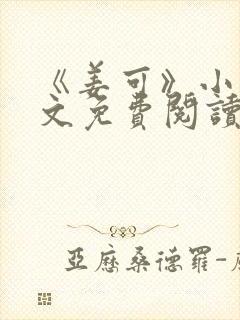 《姜可》小
文免費閱讀
亞歷桑德羅-